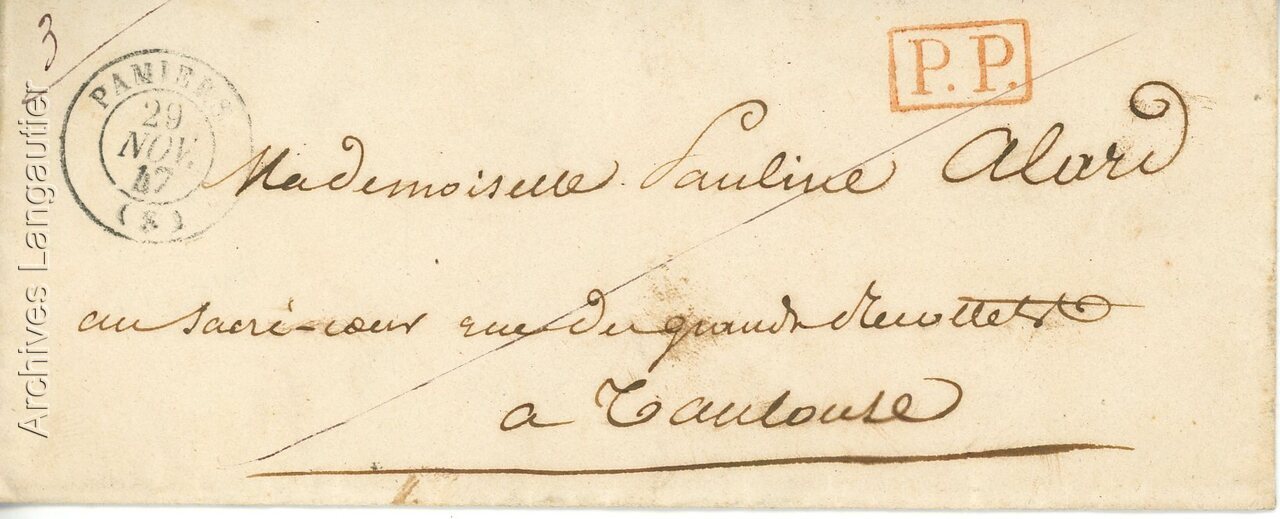 3
PAMIERS
29
NOV.
47
(8)
P.P.
Mademoiselle Pauline Alard
au Sacré-cœur rue des grands Récollets
a Toulouse
Archives Langautier